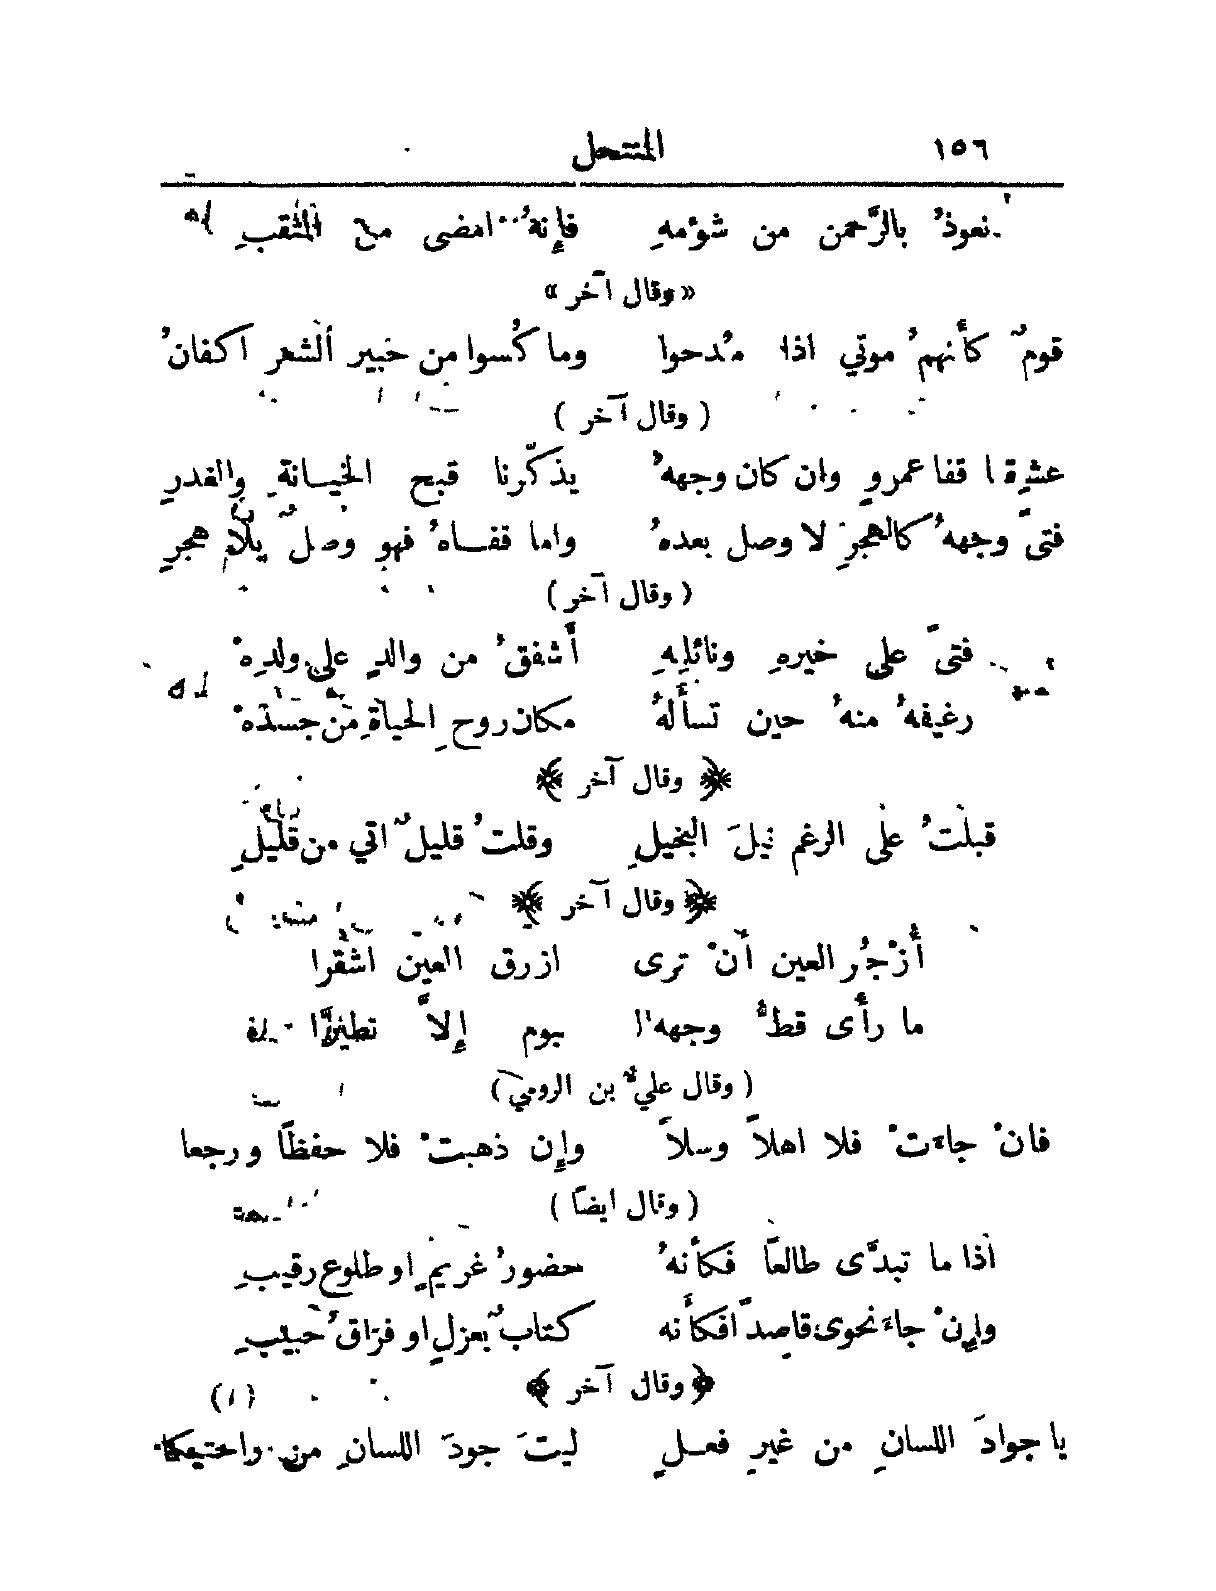 ١٥٦ المنتحل
نعوذُ بالرَّحمن من شؤمهِ فإنهُ امضى من المثقبِ
«وقال آخر»
قومٌ كأنهمُ موتي اذا مُدحوا وما كُسوا من خبير الشعر اكفانُ
( وقال آخر )
عشِرة ا قفا عمروٍ وان كان وجههُ يذكّرنا قبح الخيانةِ والغدرِ
فتىً وجههُ كالهجرِ لا وصل بعدهُ واما قفاهُ فهو وصلٌ بلا هجرِ
( وقال آخر )
فتىً على خيرهِ ونائلِهِ أشفقُ من والدٍ على ولدِهْ
رغيفهُ منهُ حين تسألهُ مكان روحِ الحياةِ من جسدهْ
﴿ وقال آخر ﴾
قبلتُ على الرغم نيلَ البخيلِ وقلتُ قليلٌ اتي من قليلِ
﴿ وقال آخر ﴾
أزْجُر العين أنْ ترى ازرق العين اشقرا
ما رأى قطُّ وجهه ا بوم إلاَّ تطيَّرَا
( وقال عليٌّ بن الرومي )
فانْ جاءَتْ فلا اهلاً وسلاً وإن ذهبتْ فلا حفظًا ورجعا
( وقال ايضًا )
اذا ما تبدَّى طالعًا فكأنهُ حضورُ غريمٍ او طلوع رقيبِ
وإنْ جاءَ نحوى قاصدًا فكأنه كتابٌ بعزلٍ او فراقُ حبيبِ
﴿ وقال آخر ﴾ (١)
يا جوادَ اللسانِ من غيرِ فعلٍ ليتَ جودَ اللسانِ من